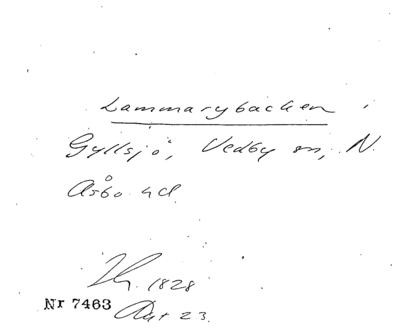 Lammarybacken
Gyllsjö, Vedby sn, N.
Åsbo hd.
1828
Nr 7463
23.